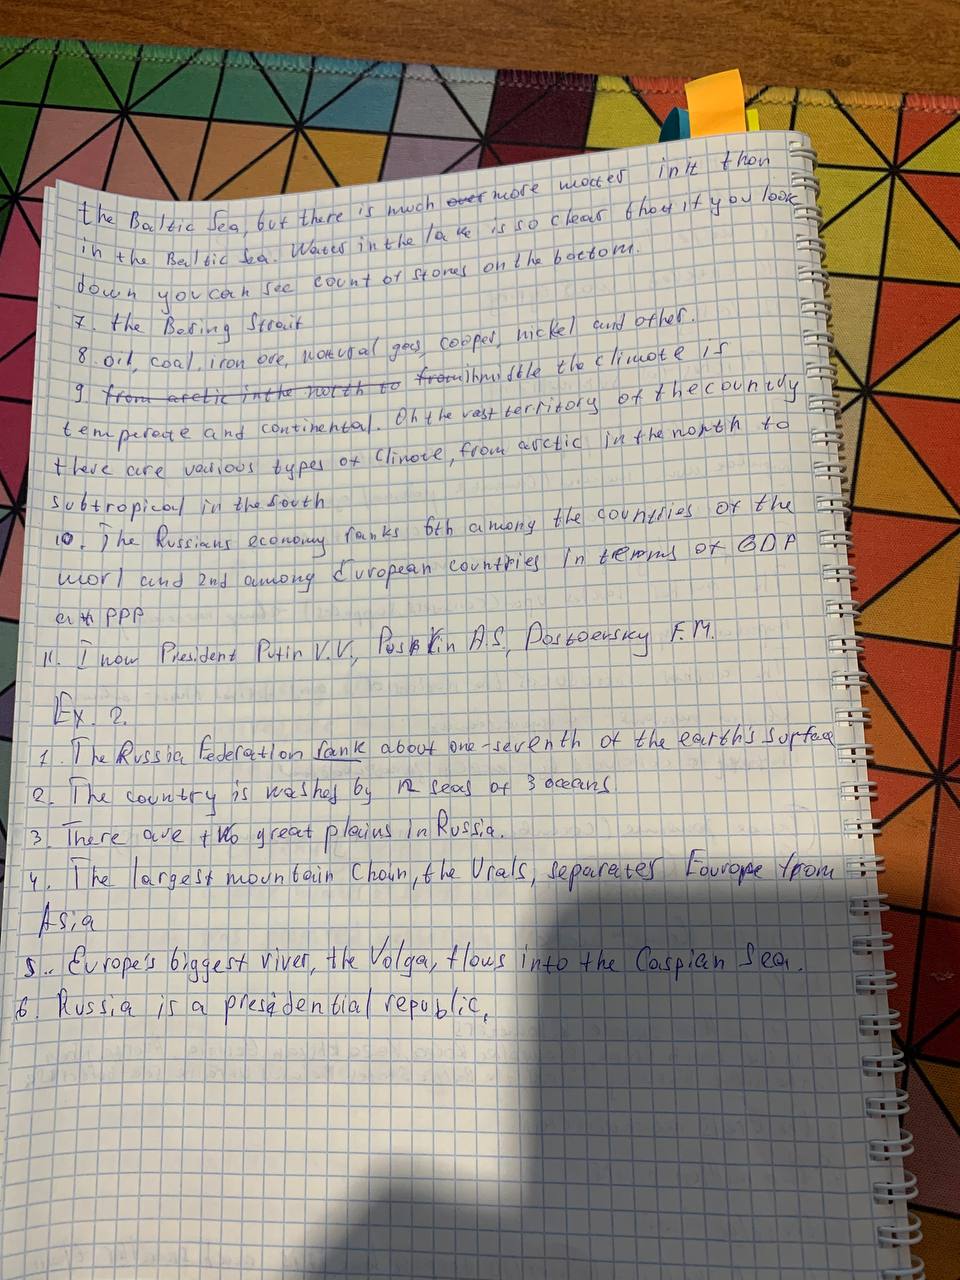 the Baltic Sea, but there is much over more water in it than
in the Baltic Sea. Water in the lake is so clear that if you look
down you can see count of stones on the bottom.
7. the Bering Strait
8. oil, coal, iron ore, natural gas, cooper, nickel and other.
9. from arctic in the north to from in middle the climate is
temperate and continental. On the vast territory of the country
there are various types of climate, from arctic in the north to
subtropical in the south
10. The Russians economy ranks 6th among the countries of the
worl and 2nd among European countries in terms of GDP
at PPP
11. I now President Putin V.V., Pushkin A.S., Dostoersky F.M.
Ex. 2.
1. The Russia Federation rank about one-seventh of the earth's surface
2. The country is washes by 12 seas of 3 oceans.
3. There are two great plains in Russia.
4. The largest mountain Chain, the Urals, separates Eourope from
Asia
5.. Europe's biggest river, the Volga, flows into the Caspian Sea.
6. Russia is a presidential republic.